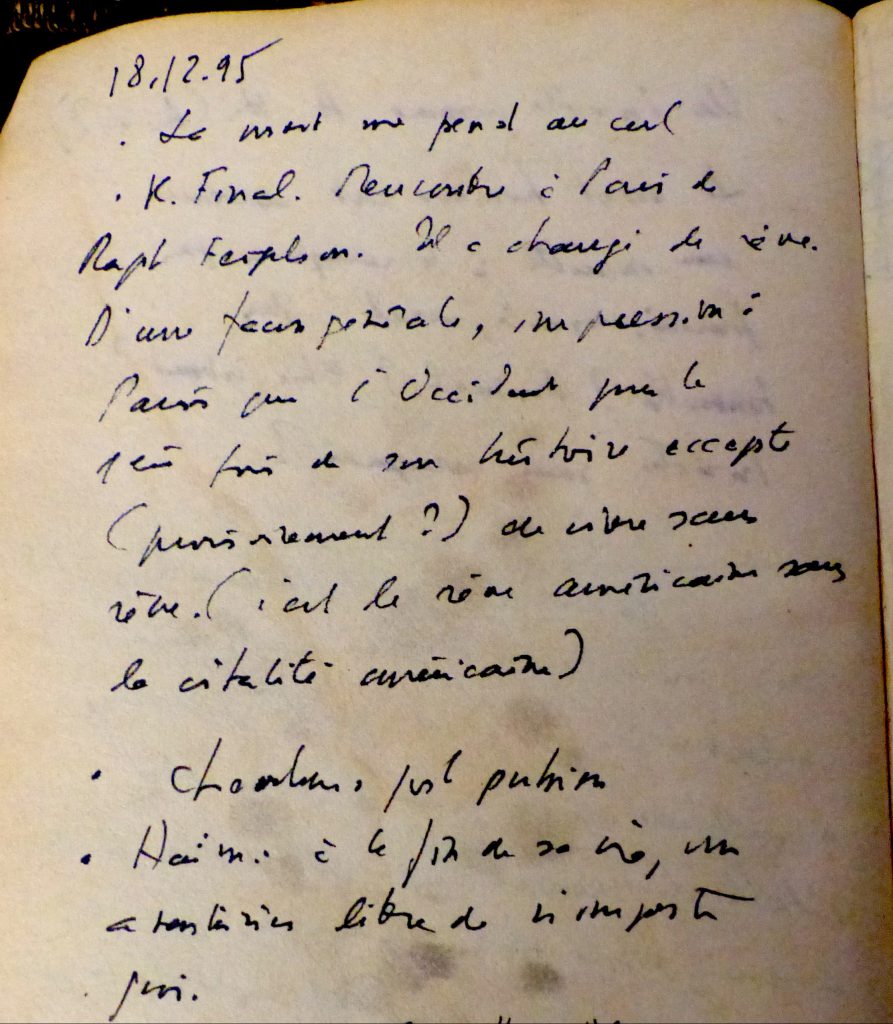 18.12.95
. La mort me pend au cul
. K. Final. Rencontre à Paris de
Il a changé de rêve.
D'une façon générale, impression à
Paris que l'Occident pour la
1ère fois de son histoire accepte
(provisoirement ?) de vivre sans
rêve. ( ict le rêve américain sans
la vitalité américaine)
.
. Haïm : à la fin de sa vie, un
libre de n'importe
quoi.